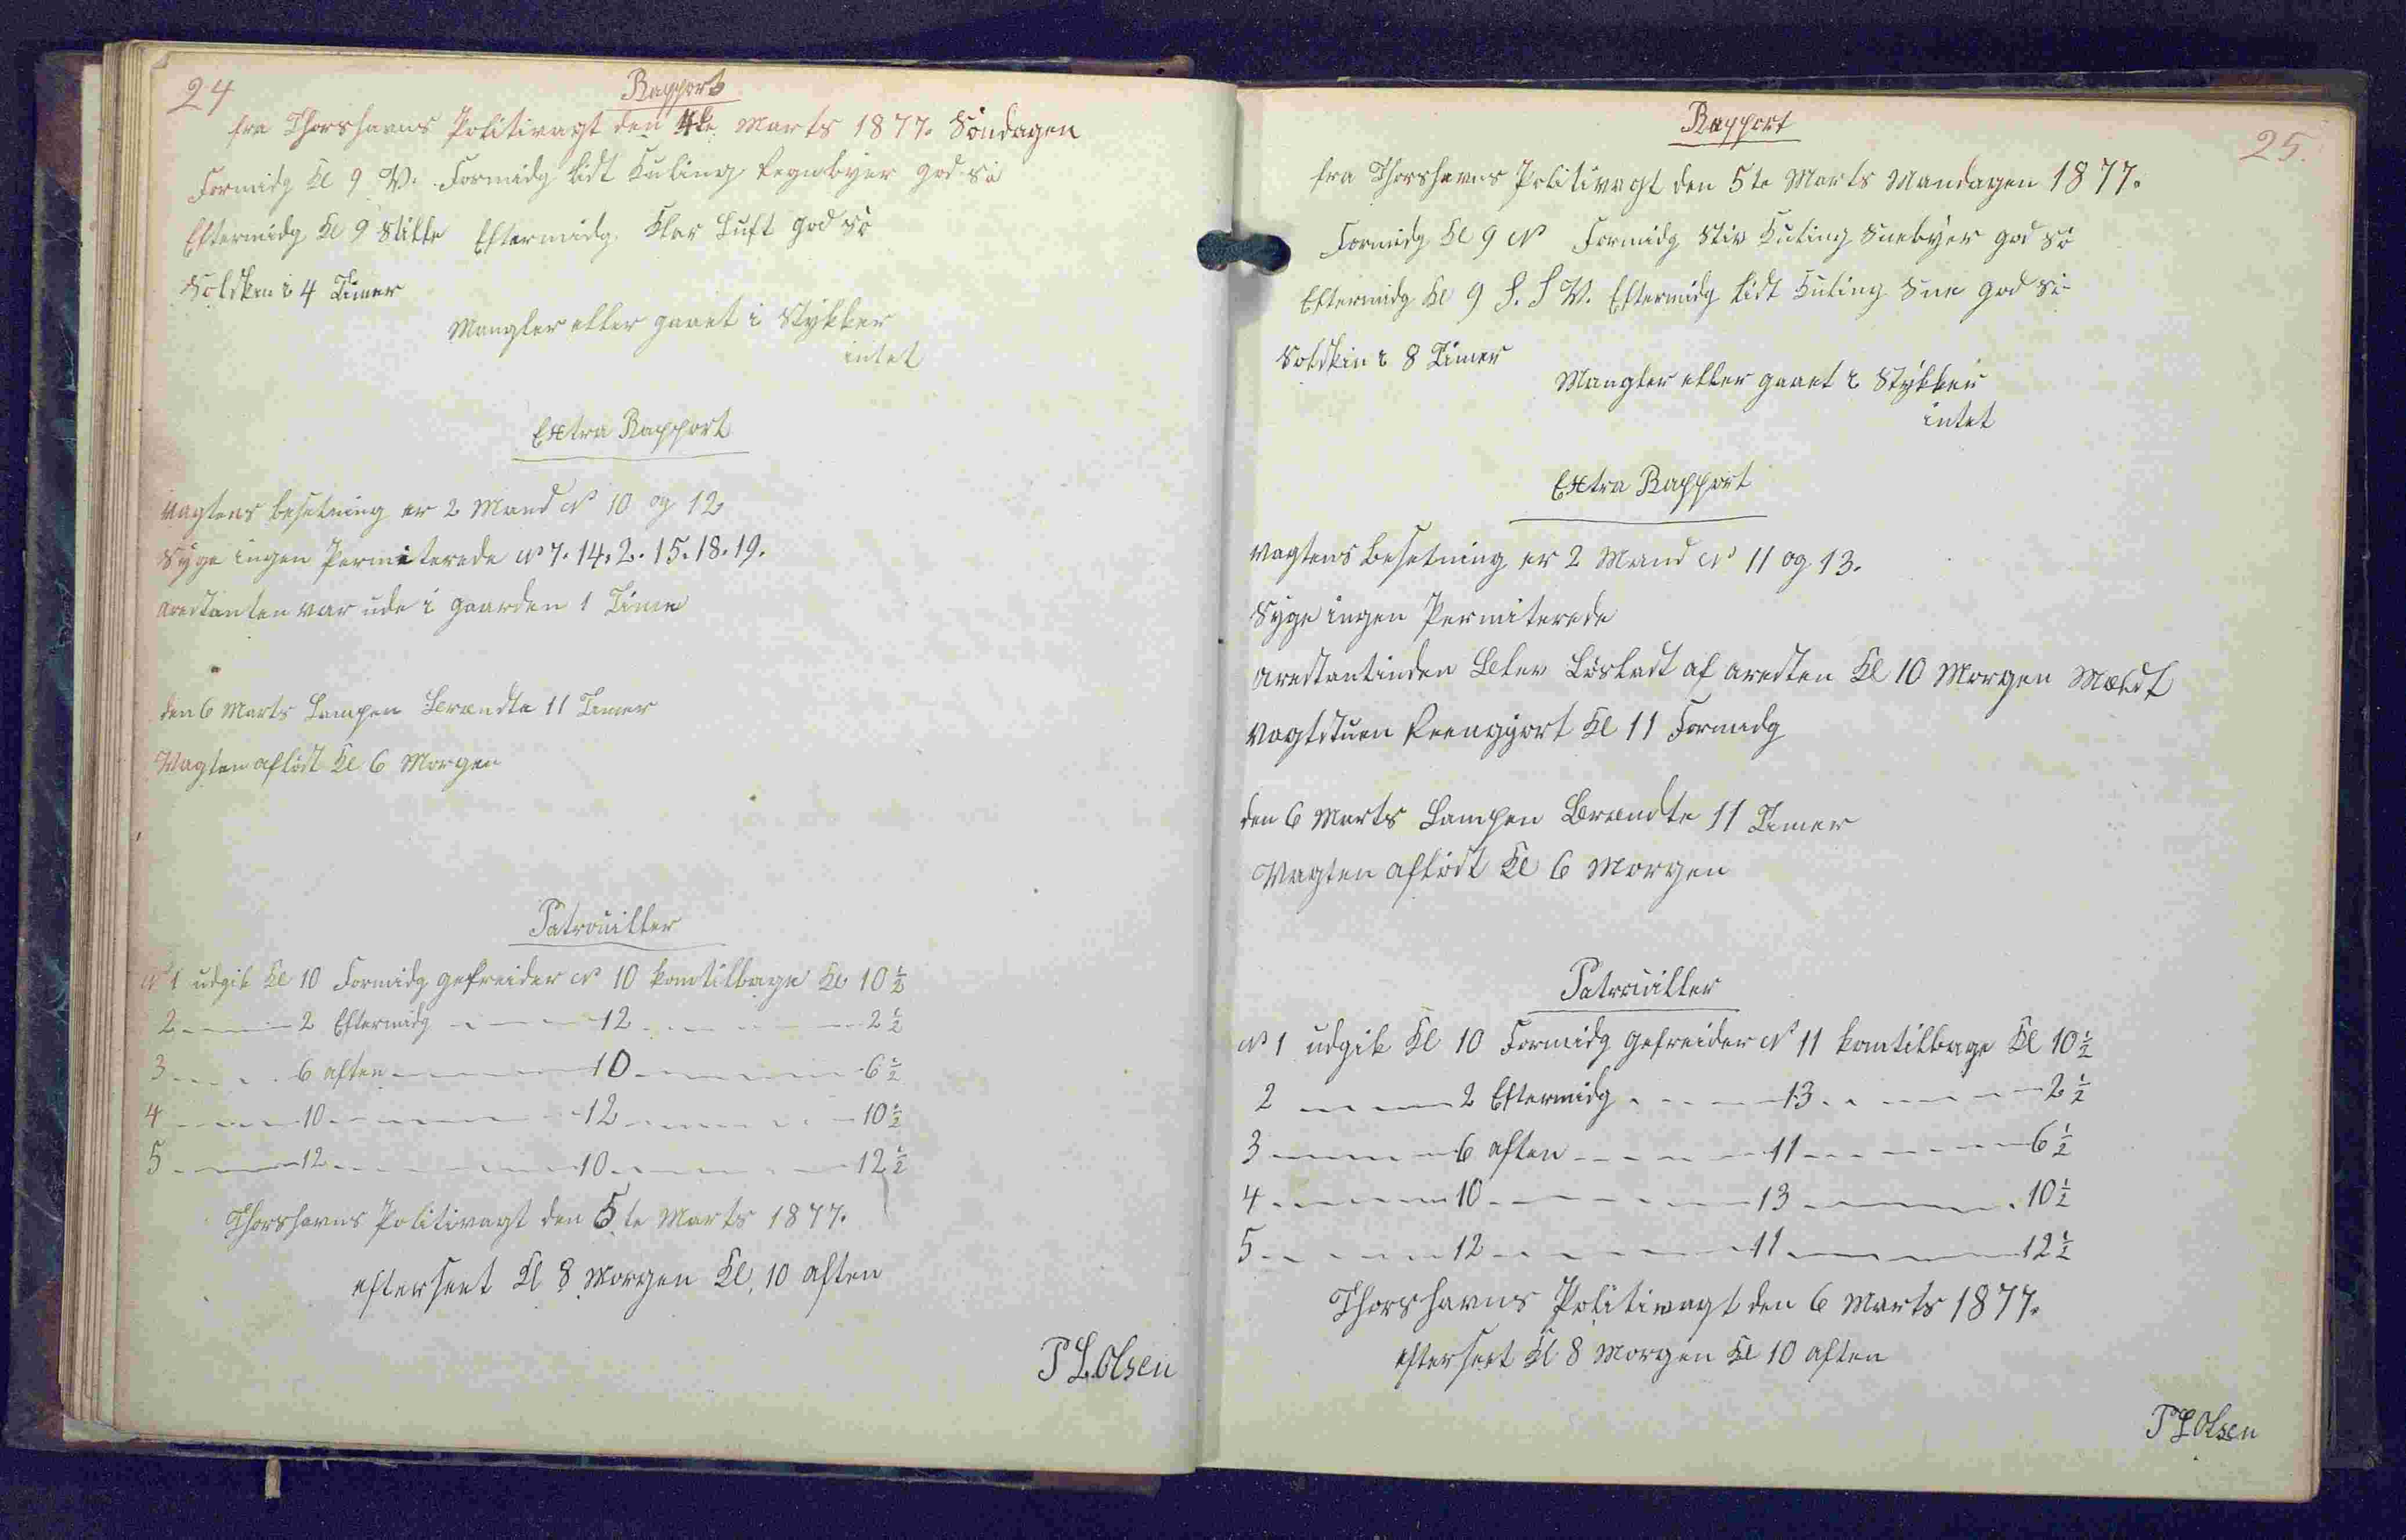 24
Rapport
fra Thorshavns Politivagt den 4de Marts 1877. Søndagen
Formidg Kl 9 V. Formidg lidt Kuling Regnbyer god Sø
Eftermidg Kl 9 Stille Eftermidg Klar Luft god Sø
Solskin i 4 Timer
Mangler eller gaaet i Stykker
intet
Extra Rapport
Vagtens besetning er 2 Mand No 10 og 12
Syge ingen Permiterede No 7. 14. 2. 15. 18. 19.
arestanten var ude i gaarden 1 Time
den 6 Marts Lampen Brændte 11 Timer
Vagten afløst Kl 6 Morgen
Patrouiller
No 1 udgik Kl 10 Formidg gefreider No 10 kom tilbage Kl 10 1/2
2 2 Eftermidg 12 2 1/2
3 6 aften 10 6 1/2
4 10 12 10 1/2
5 12 10 12 1/2
Thorshavns Politivagt den 5te Marts 1877.
efterseet Kl 8 Morgen Kl. 10 aften
P L Olsen
25.
Rapport
fra Thorshavns Politivagt den 5te Marts Mandagen 1877.
Formidg Kl 9 N Formidg Stiv Kuling Snebyer god Sø
Eftermidg Kl 9 S. S V. Eftermidg lidt Kuling Sne god Sø
Solskin i 8 Timer
Mangler eller gaaet i Stykker
intet
Extra Rapport
Vagtens Besetning er 2 Mand No 11 og 13.
Syge ingen Permiterede
arestantinden Blev Løsladt af aresten Kl 10 Morgen Meldt
Vagtstuen Reengjort Kl 11 Formidg
den 6 Marts Lampen Brændte 11 Timer
Vagten afløst Kl 6 Morgen
Patrouiller
No 1 udgik Kl 10 Formidg gefreider No 11 kom tilbage Kl 10 1/2
2 2 Eftermidg 13 2 1/2
3 6 aften 11 6 1/2
4 10 13 10 1/2
5 12 11 12 1/2
Thorshavns Politivagt den 6 Marts 1877.
efterseet Kl 8 Morgen Kl 10 aften
P L Olsen